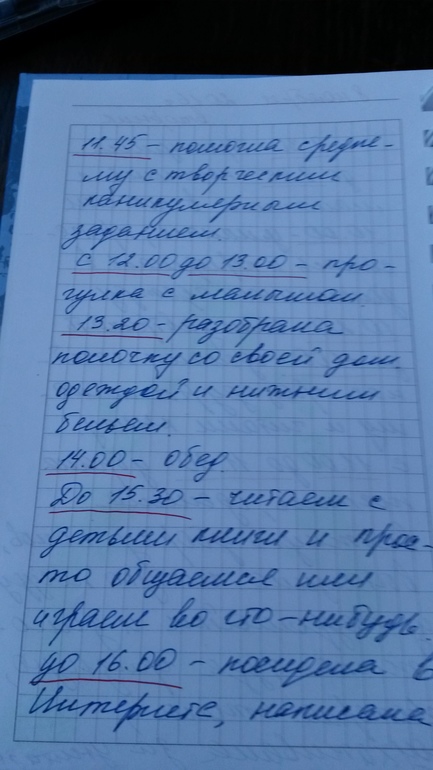 11.45 - помогла средне-
му с творческим
каникулярным
заданием.
С 12.00 до 13.00 - про-
гулка с малышом.
13.20 - разобрала
полочку со своей дом.
одеждой и нижним
бельем.
14.00 - обед
До 15.30 - читаем с
детьми книги и прос-
то общаемся или
играем во что-нибудь.
до 16.00 - посидела в
Интернете, написала